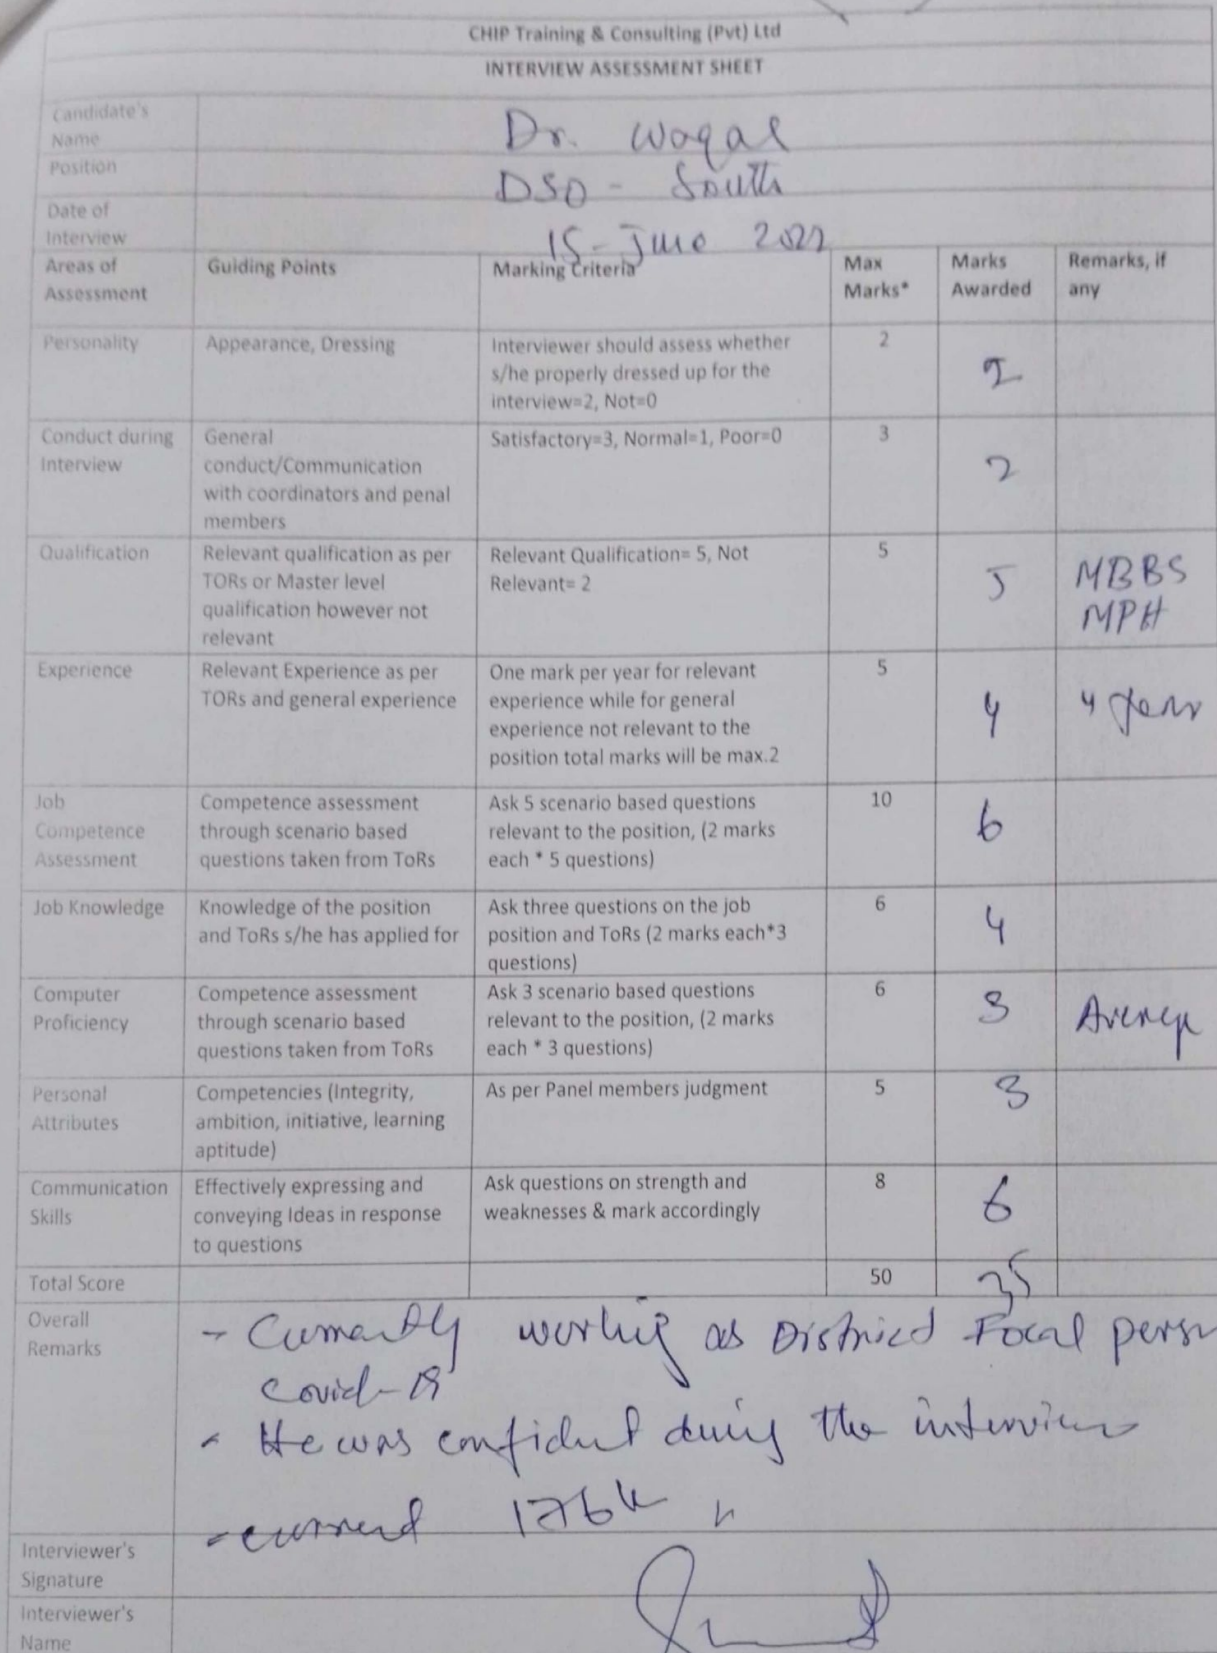 CHIP Training & Consulting (Pvt) Ltd
INTERVIEW ASSESSMENT SHEET
Candidate's
Name
Dr. Waqas
Position
DSO - South
Date of
Interview
15 - June 2022
Areas of
Assessment
Guiding Points
Marking Criteria
Max
Marks*
Marks
Awarded
Remarks, if
any
Personality
Appearance, Dressing
Interviewer should assess whether
s/he properly dressed up for the
interview=2, Not=0
2
2
Conduct during
Interview
General
conduct/Communication
with coordinators and penal
members
Satisfactory=3, Normal=1, Poor=0
3
2
Qualification
Relevant qualification as per
TORs or Master level
qualification however not
relevant
Relevant Qualification= 5, Not
Relevant= 2
5
5
MBBS
MPH
Experience
Relevant Experience as per
TORs and general experience
One mark per year for relevant
experience while for general
experience not relevant to the
position total marks will be max.2
5
4
4 years
Job
Competence
Assessment
Competence assessment
through scenario based
questions taken from ToRs
Ask 5 scenario based questions
relevant to the position, (2 marks
each * 5 questions)
10
6
Job Knowledge
Knowledge of the position
and ToRs s/he has applied for
Ask three questions on the job
position and ToRs (2 marks each*3
questions)
6
4
Computer
Proficiency
Competence assessment
through scenario based
questions taken from ToRs
Ask 3 scenario based questions
relevant to the position, (2 marks
each * 3 questions)
6
3
Average
Personal
Attributes
Competencies (Integrity,
ambition, initiative, learning
aptitude)
As per Panel members judgment
5
3
Communication
Skills
Effectively expressing and
conveying Ideas in response
to questions
Ask questions on strength and
weaknesses & mark accordingly
8
6
Total Score
50
35
Overall
Remarks
- Currently working as District Focal person
Covid-19
- He was confident during the interview
- current 176k
Interviewer's
Signature
Interviewer's
Name